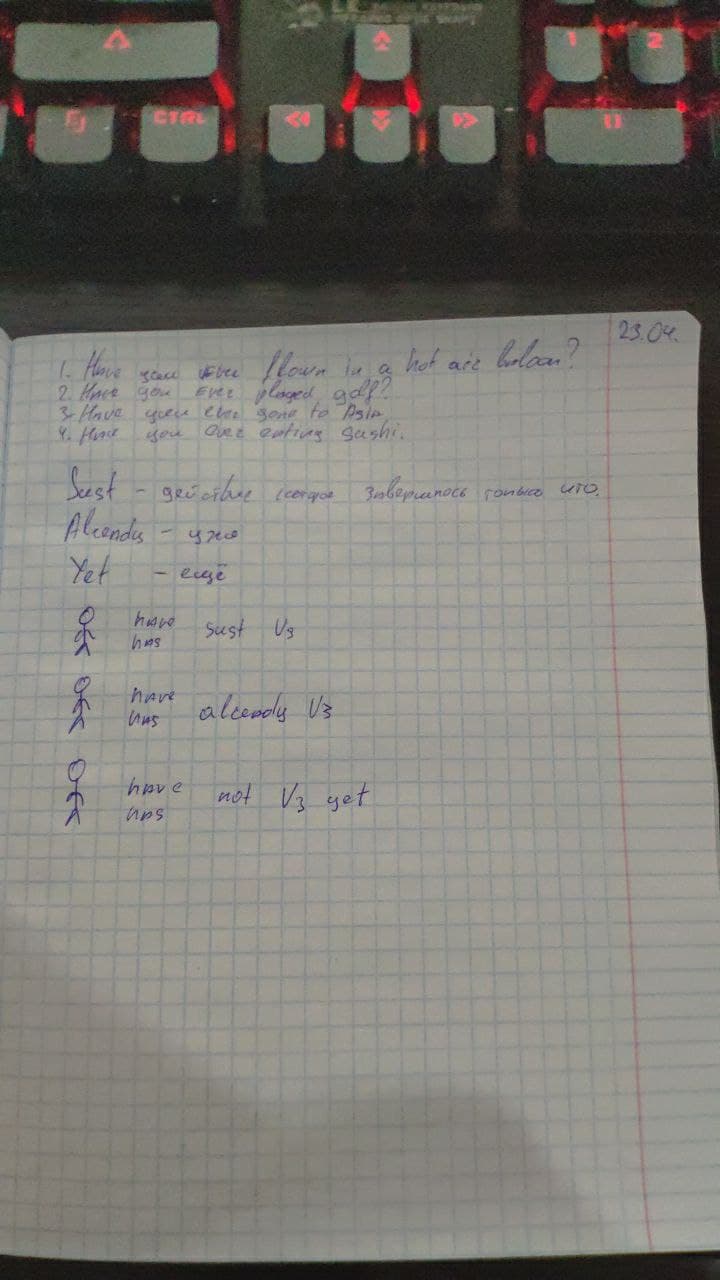 CTRL
1
2
23.04.
1. Have you ever flown in a hot air baloon?
2. Have you ever played golf?
3. Have you ever gone to Asia
4. Have you ever eating sushi.
Just - действие которое завершилось только что.
Already - уже
Yet - ещё
have
has just V3
have
has already V3
have
has not V3 yet